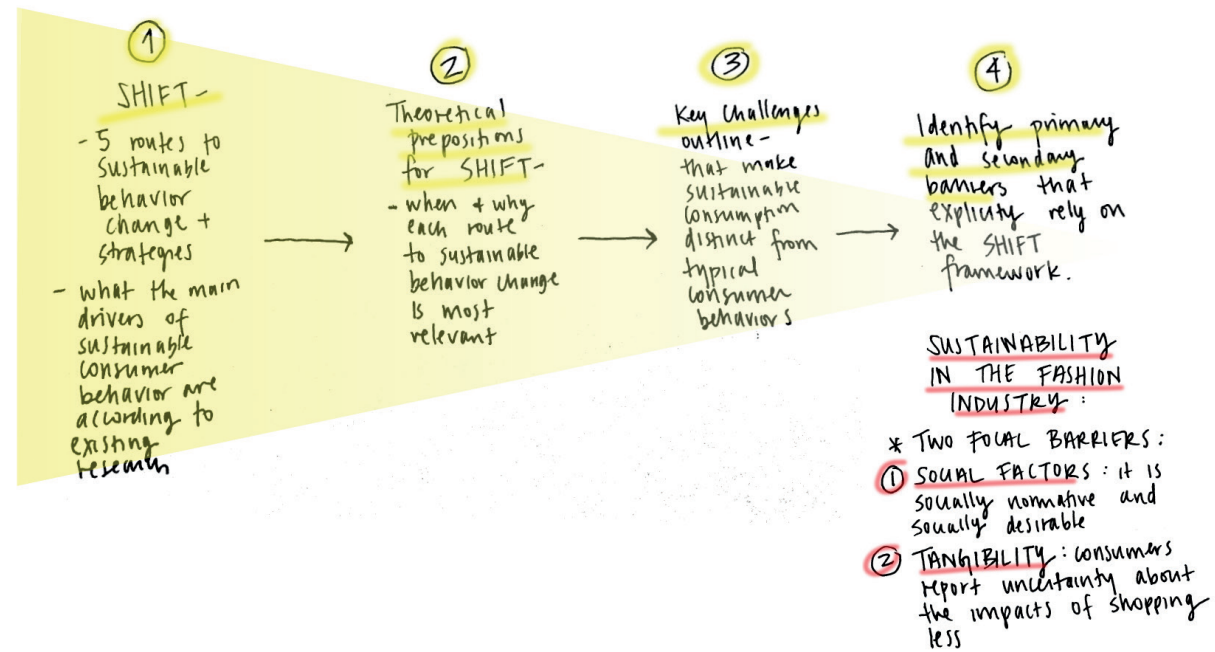 1
SHIFT -
- 5 routes to
sustainable
behavior
change +
strategies
- what the main
drivers of
sustainable
consumer
behavior are
according to
existing
research
2
Theoretical
prepositions
for SHIFT -
- when & why
each route
to sustainable
behavior change
is most
relevant
3
Key Challenges
outline -
that make
sustainable
consumption
distinct from
typical
consumer
behaviors
4
Identify primary
and secondary
barriers that
explicity rely on
the SHIFT
framework.
SUSTAINABILITY
IN THE FASHION
INDUSTRY :
* TWO FOCAL BARRIERS :
1 SOCIAL FACTORS : it is
socially normative and
socially desirable
2 TANGIBILITY : consumers
report uncertainty about
the impacts of shopping
less